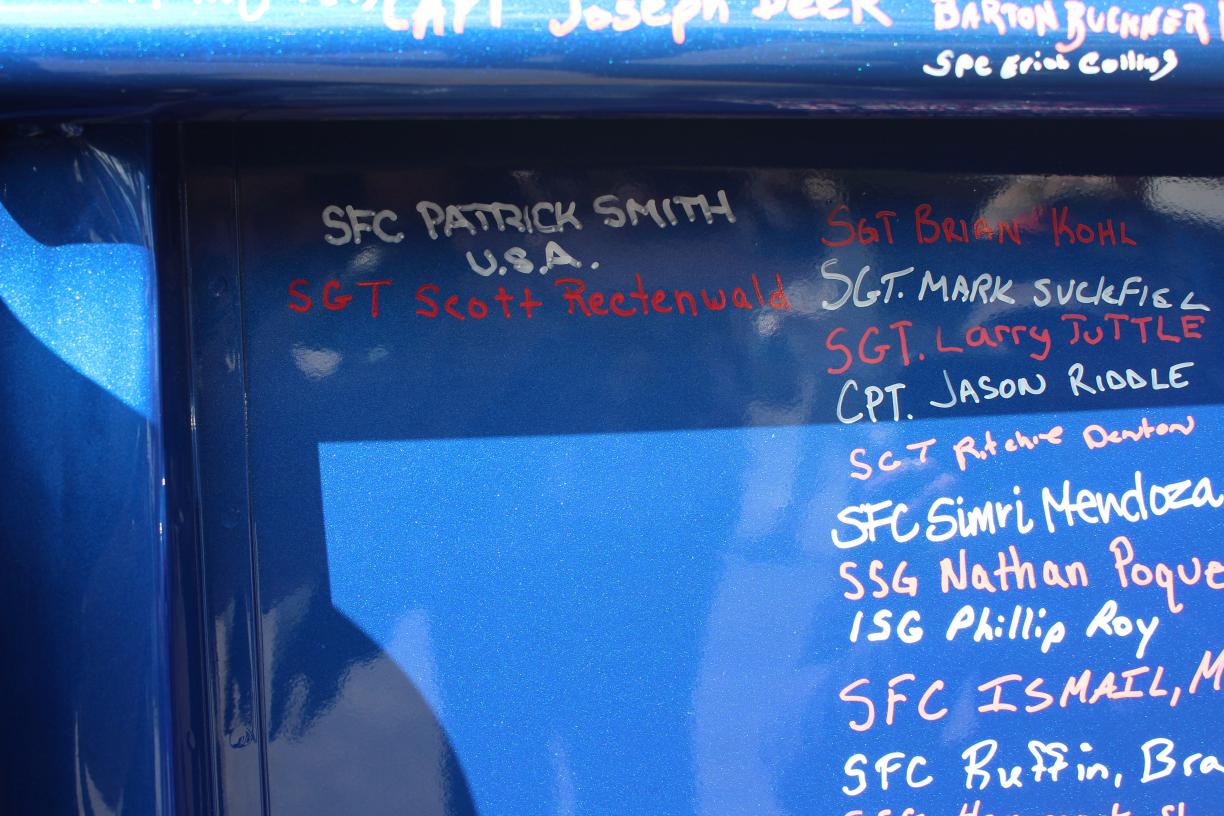 CAPT Joseph Beck
BARTON BUCKNER
Spc Erich Collins
SFC PATRICK SMITH
U.S.A.
SGT Scott Rectenwald
SGT BRIAN KOHL
SGT. MARK SUCKFIEL
SGT. Larry TUTTLE
CPT. JASON RIDDLE
SGT Ritchie Denton
SFC Simri Mendoza
SSG Nathan Poque
1SG Phillip Roy
SFC ISMAIL, M
SFC Ruffin, Bra